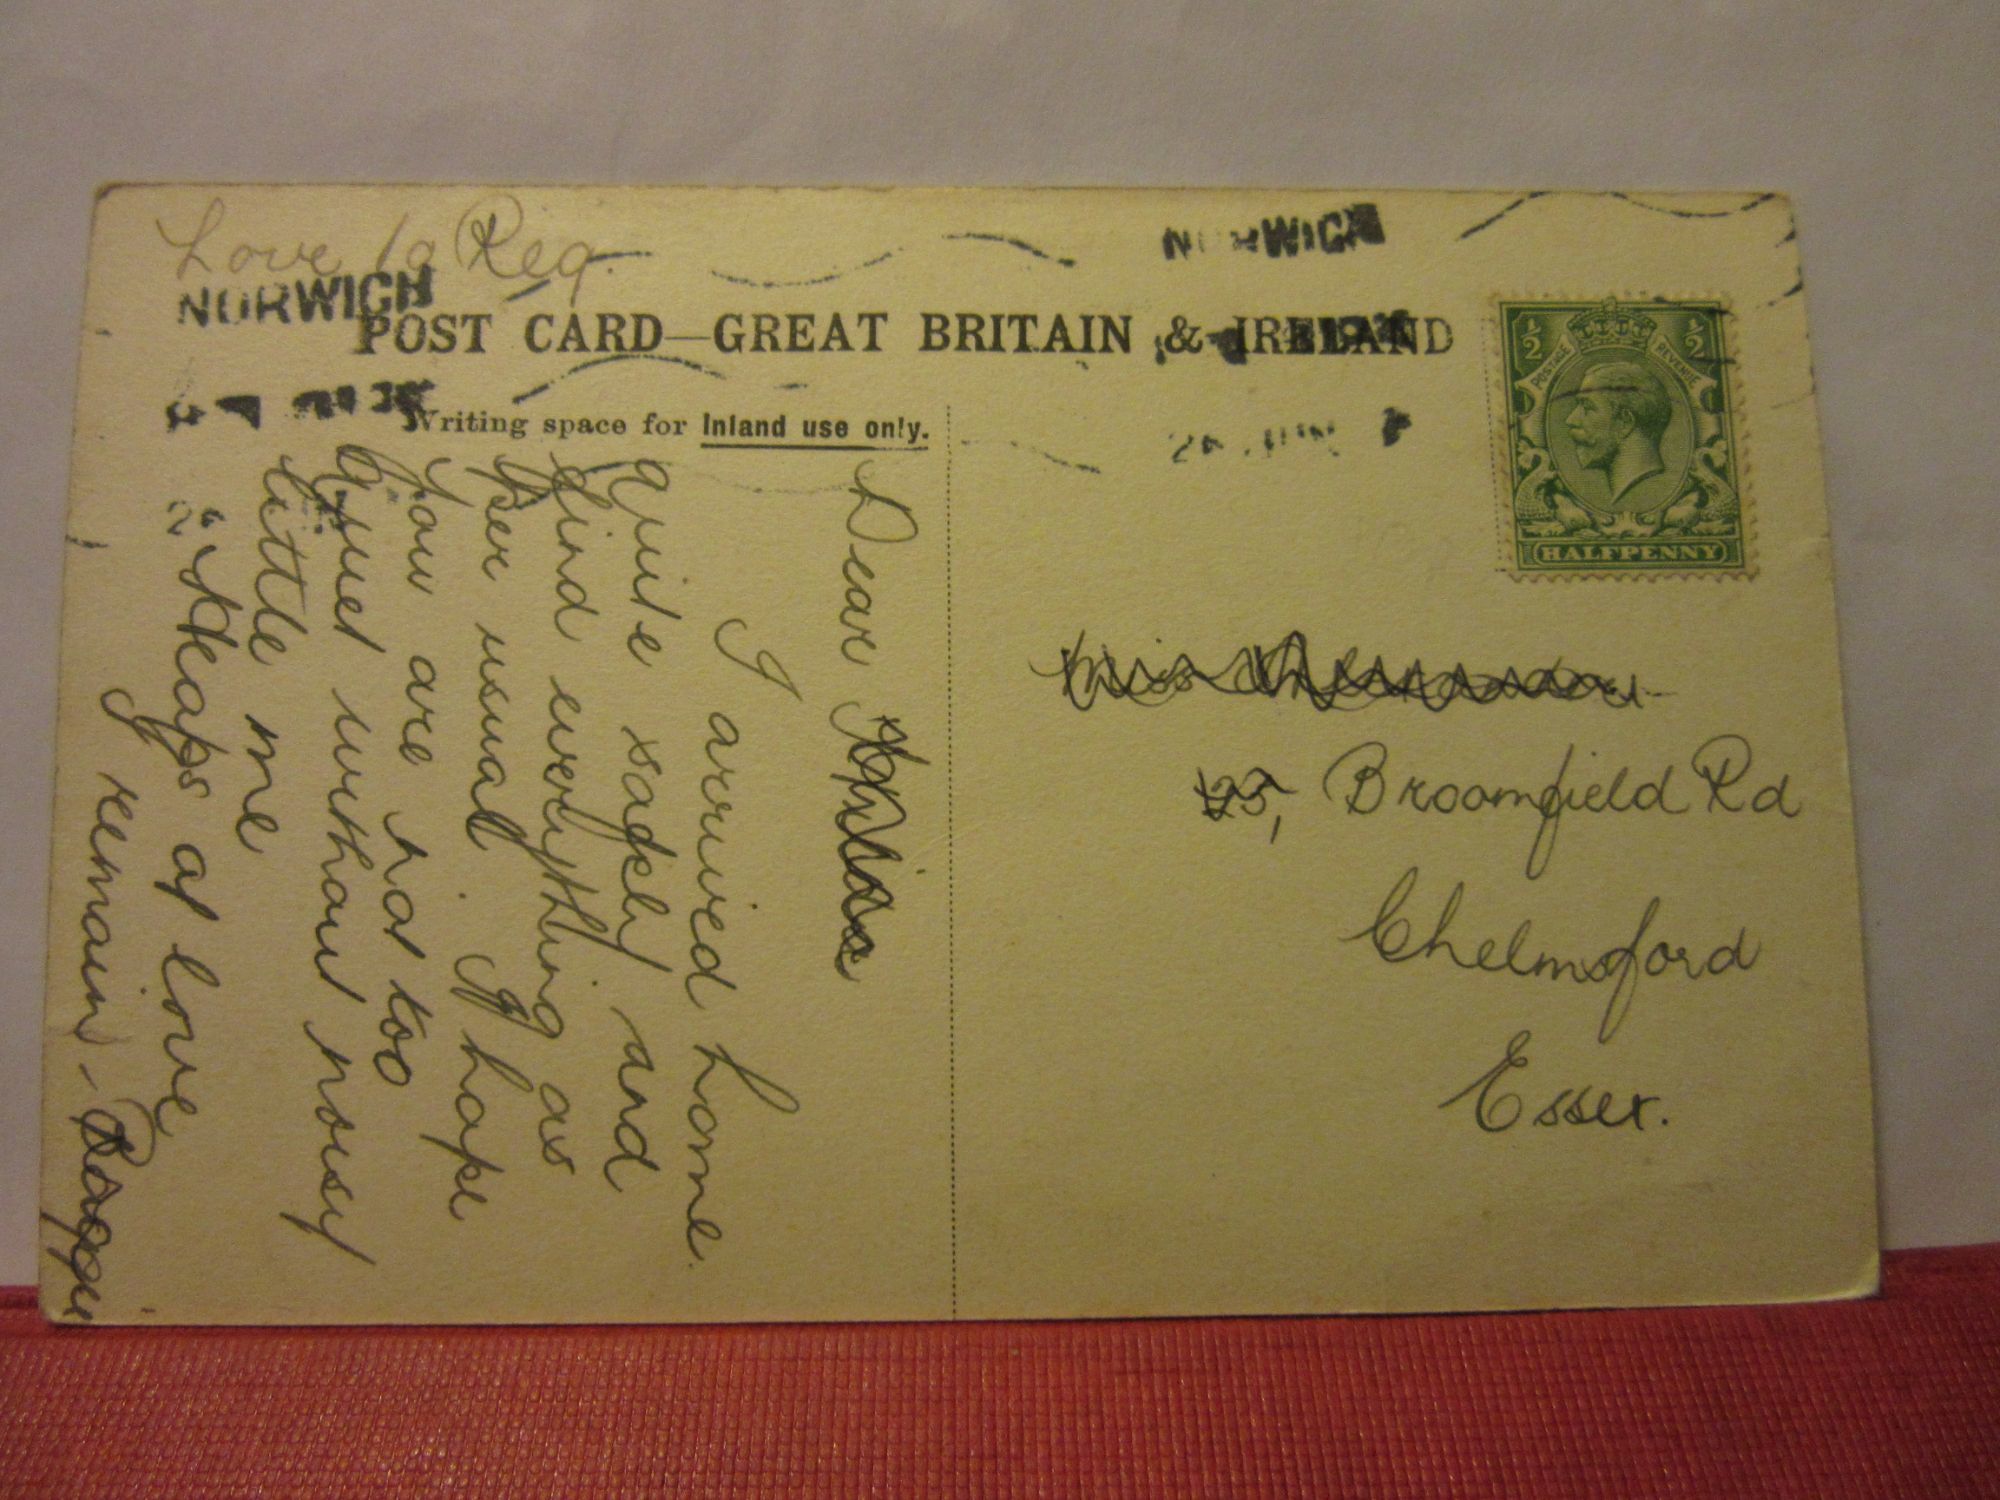 Love to Reg.
NORWICH
NORWICH
POST CARD—GREAT BRITAIN & IRELAND
Writing space for Inland use only.
POSTAGE REVENUE
½ ½
HALFPENNY
Dear
I arrived home
quite safely and
find everything as
per usual. I hope
you are not too
quiet without noisy
little me
Heaps of love
I remain,
Miss
Broomfield Rd
Chelmsford
Essex.